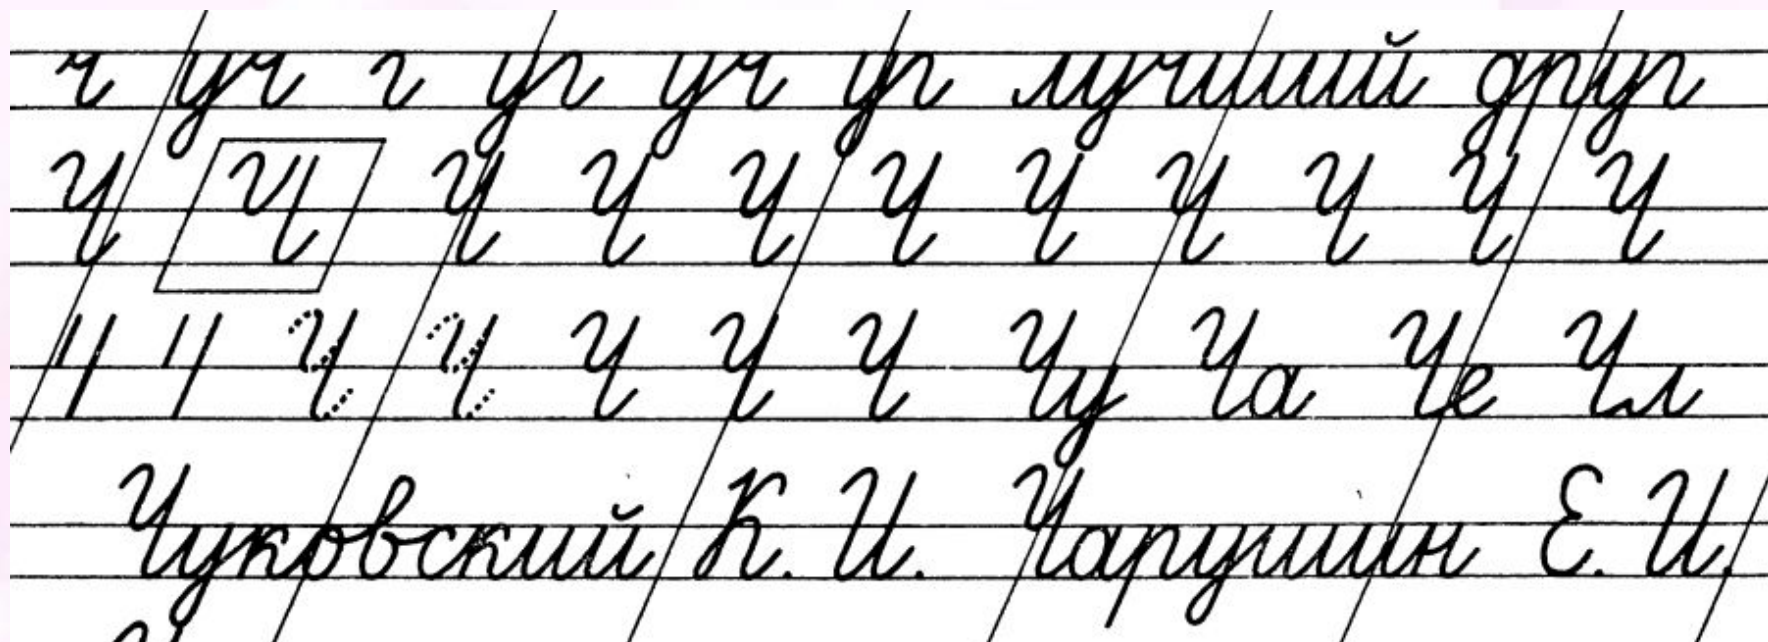 ч уч г уг уч уг лучший друг
Ч Ч Ч Ч Ч Ч Ч Ч Ч Ч Ч
Ч Ч Ч Ч Ч Чу Ча Че Чл
Чуковский К. И. Чарушин Е. И.